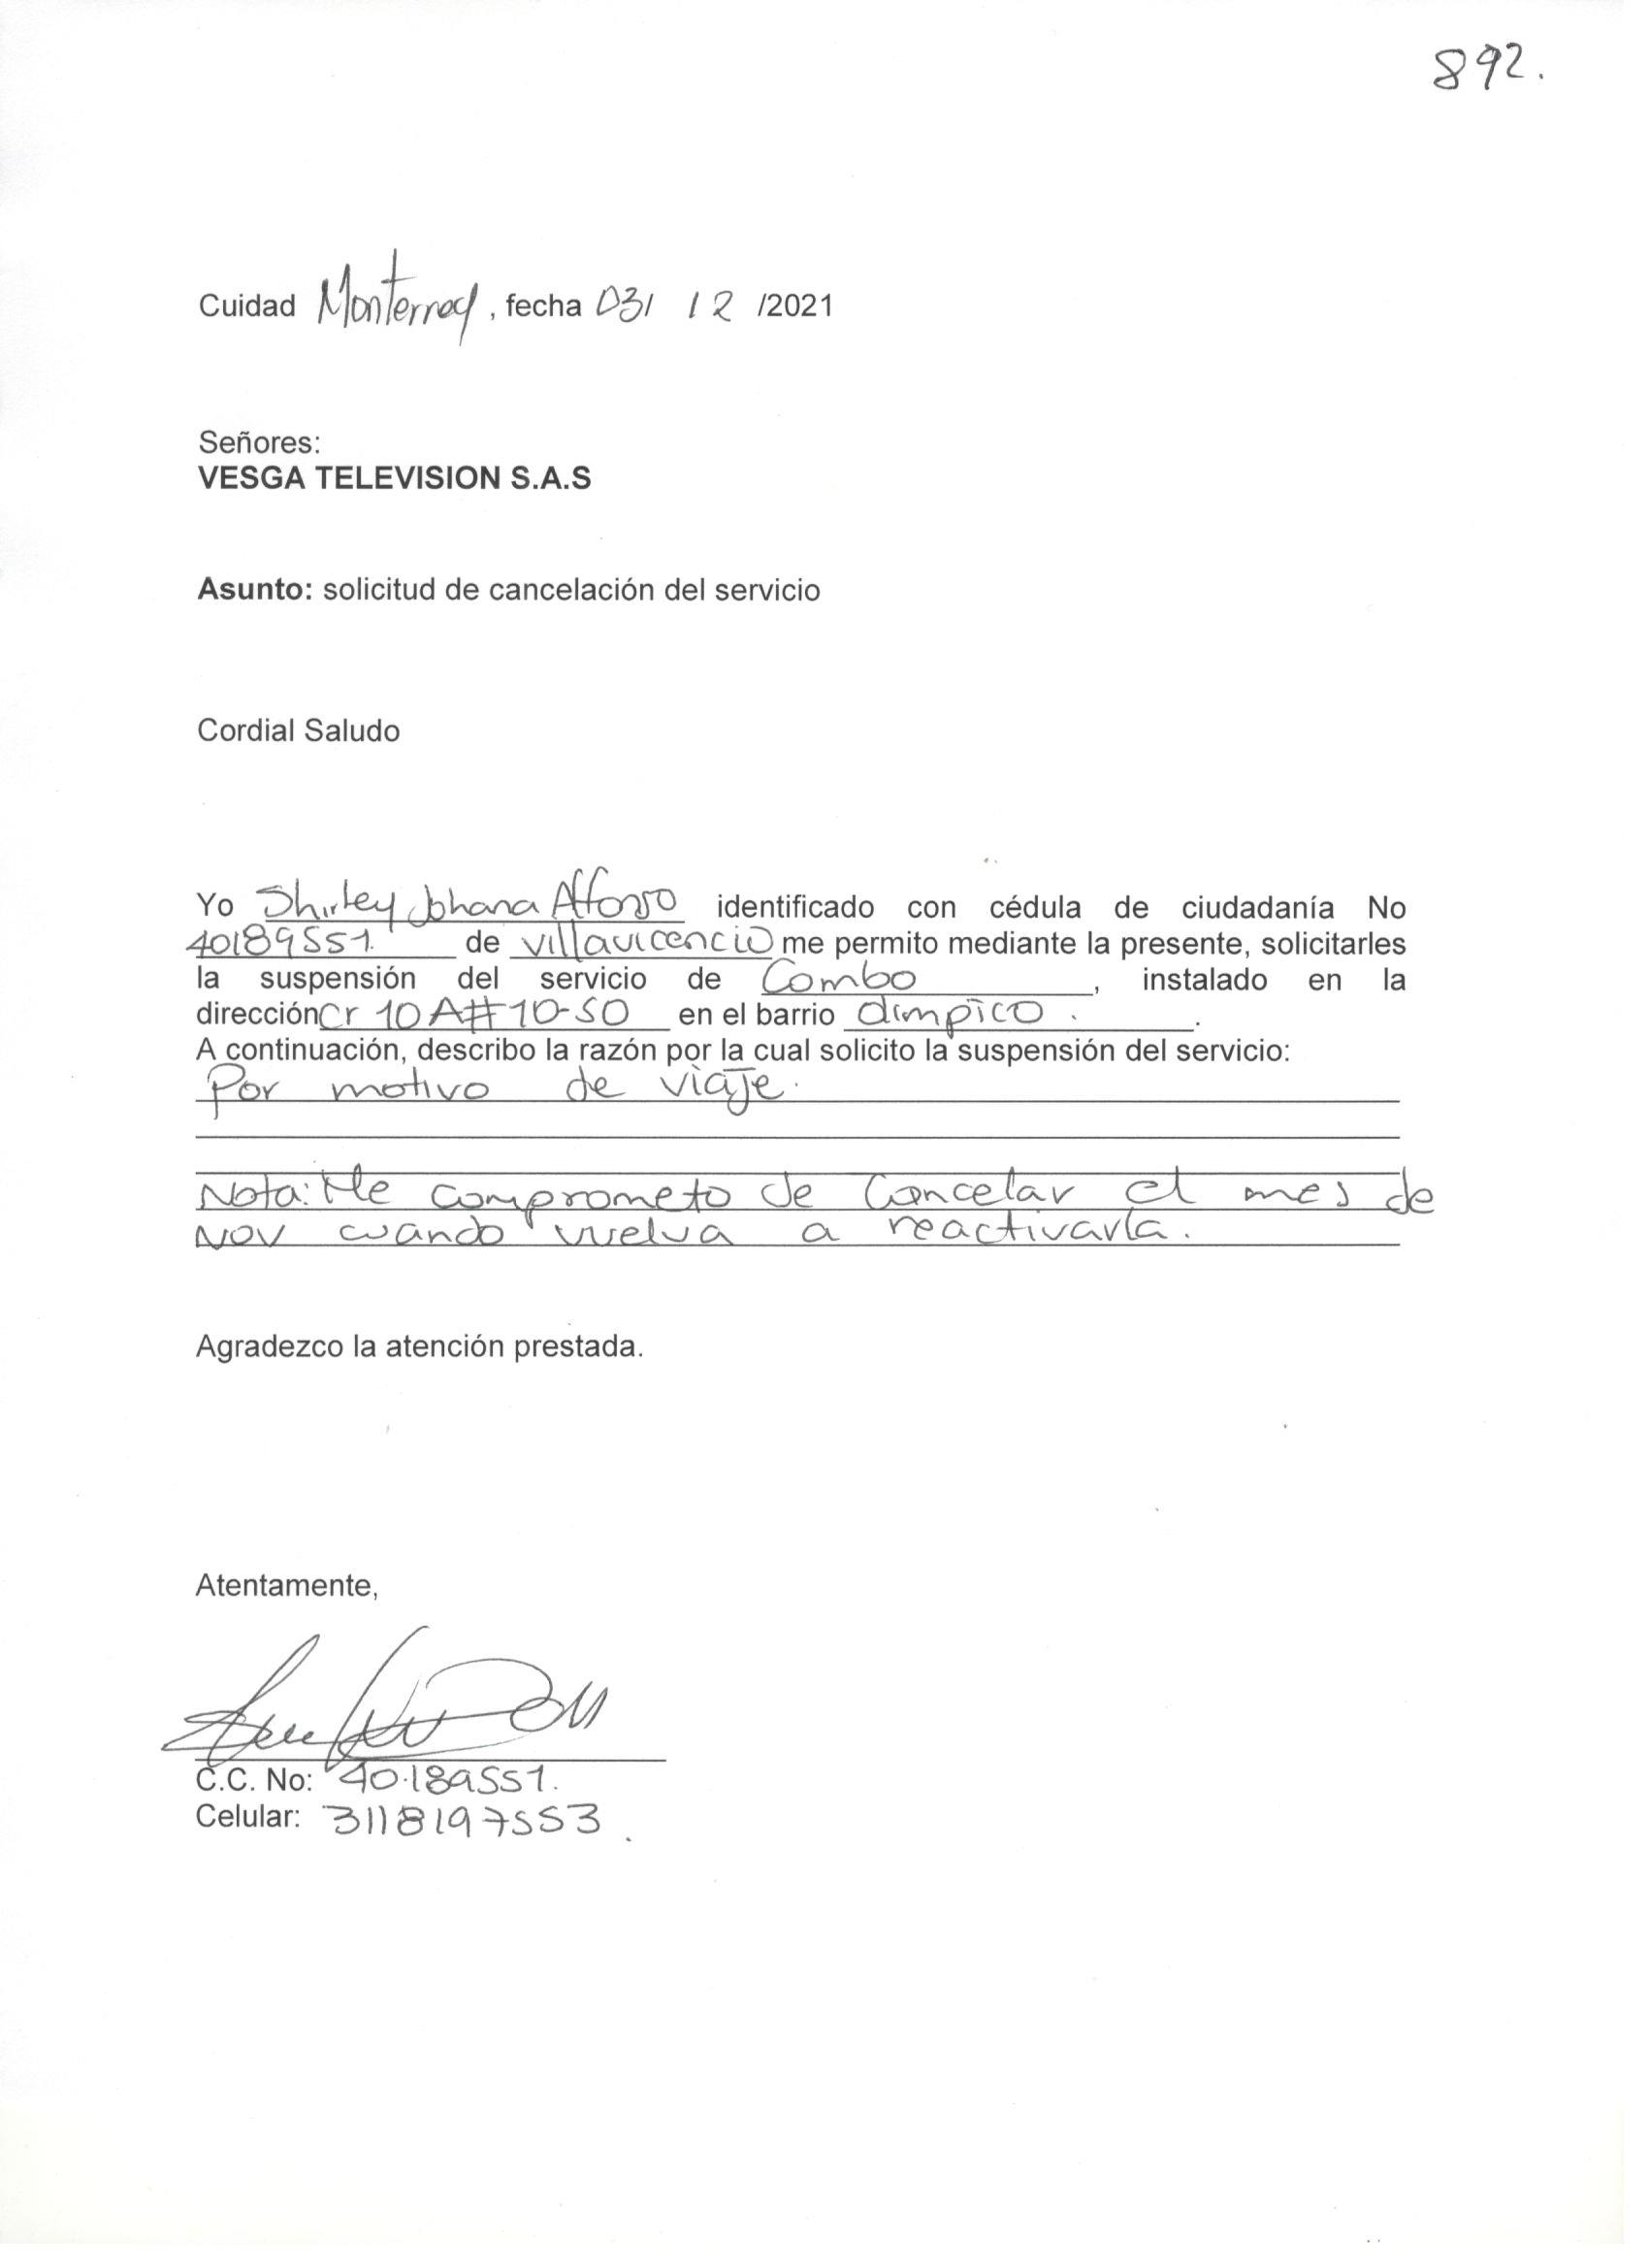 892.
Cuidad Monterrey, fecha 03/ 12 /2021
Señores:
VESGA TELEVISION S.A.S
Asunto: solicitud de cancelación del servicio
Cordial Saludo
Yo Shirley Johana Alfonso identificado con cédula de ciudadanía No
40189551. de villavicencio me permito mediante la presente, solicitarles
la suspensión del servicio de Combo, instalado en la
dirección Cr 10A#10-50 en el barrio olimpico.
A continuación, describo la razón por la cual solicito la suspensión del servicio:
Por motivo de viaje.
Nota: Me comprometo de Cancelar el mes de
Nov cuando vuelva a reactivarla.
Agradezco la atención prestada.
Atentamente,
C.C. No: 40.189551.
Celular: 3118197553.